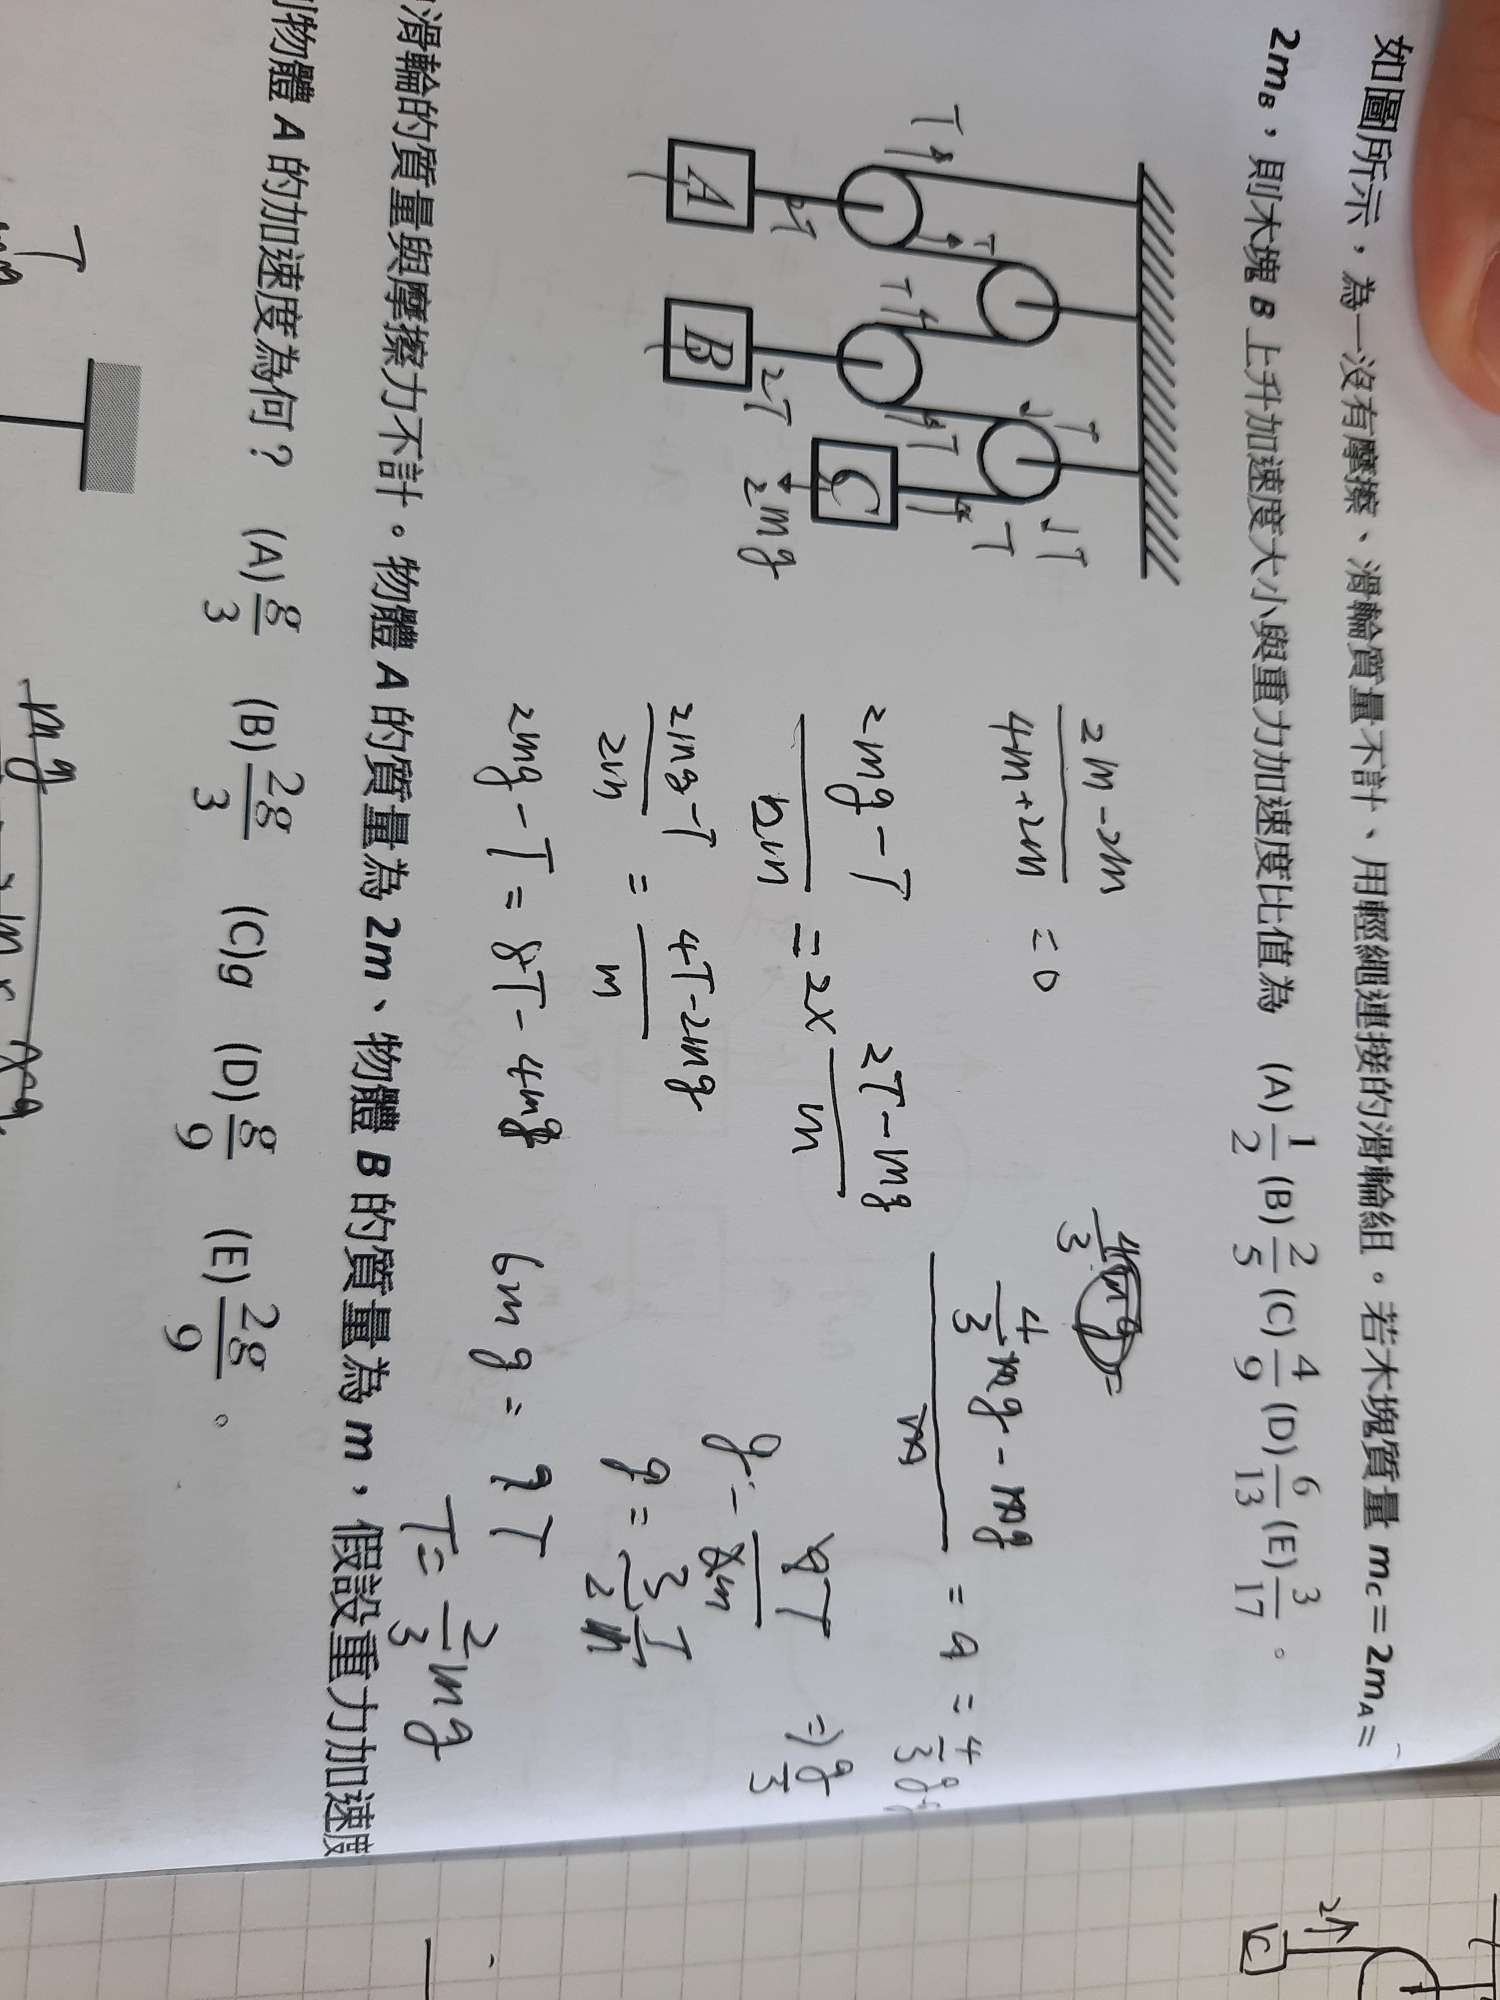 如圖所示，為一沒有摩擦、滑輪質量不計、用輕繩連接的滑輪組。若木塊質量 mC = 2mA =
2mB，則木塊 B 上升加速度大小與重力加速度比值為 (A) 1/2 (B) 2/5 (C) 4/9 (D) 6/13 (E) 3/17。
T
T
T
T
T
T
T
T
2T
2mg
A
B
C
2m-2m / 4m+2m = 0
2mg-T / 2m = 2× 2T-mg / m
2mg-T / 2m = 4T-2mg / m
2mg-T = 8T-4mg
6mg = 9T
T = 2/3 mg
4/3 mg-mg / m = a = 4/3 g
⇒ g/3
滑輪的質量與摩擦力不計。物體 A 的質量為 2m、物體 B 的質量為 m，假設重力加速度
物體 A 的加速度為何？ (A) g/3 (B) 2g/3 (C)g (D) g/9 (E) 2g/9。
T
mg
C